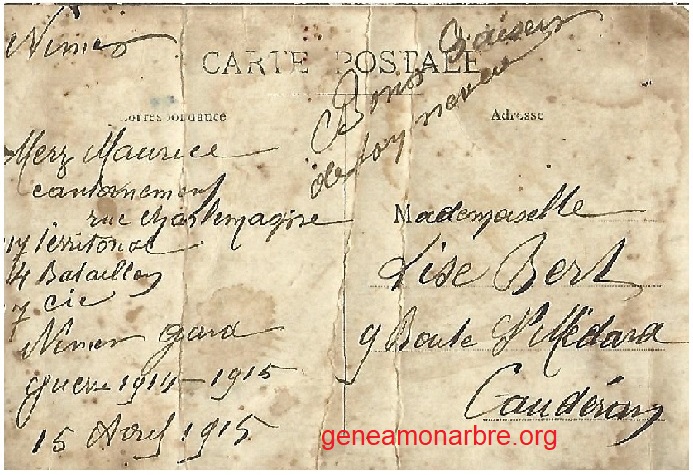 Nimes
CARTE POSTALE
Bons Baisers
de ton neveu
Correspondance
Adresse
Merz Maurice
cantonnement
rue Charlemagne
117 Territorial
4 Bataillon
7 Cie
Nimes Gard
guerre 1914-1915
15 Avril 1915
Mademoiselle
Lise Bert
9 Route St Médard
Caudéran
geneamonarbre.org